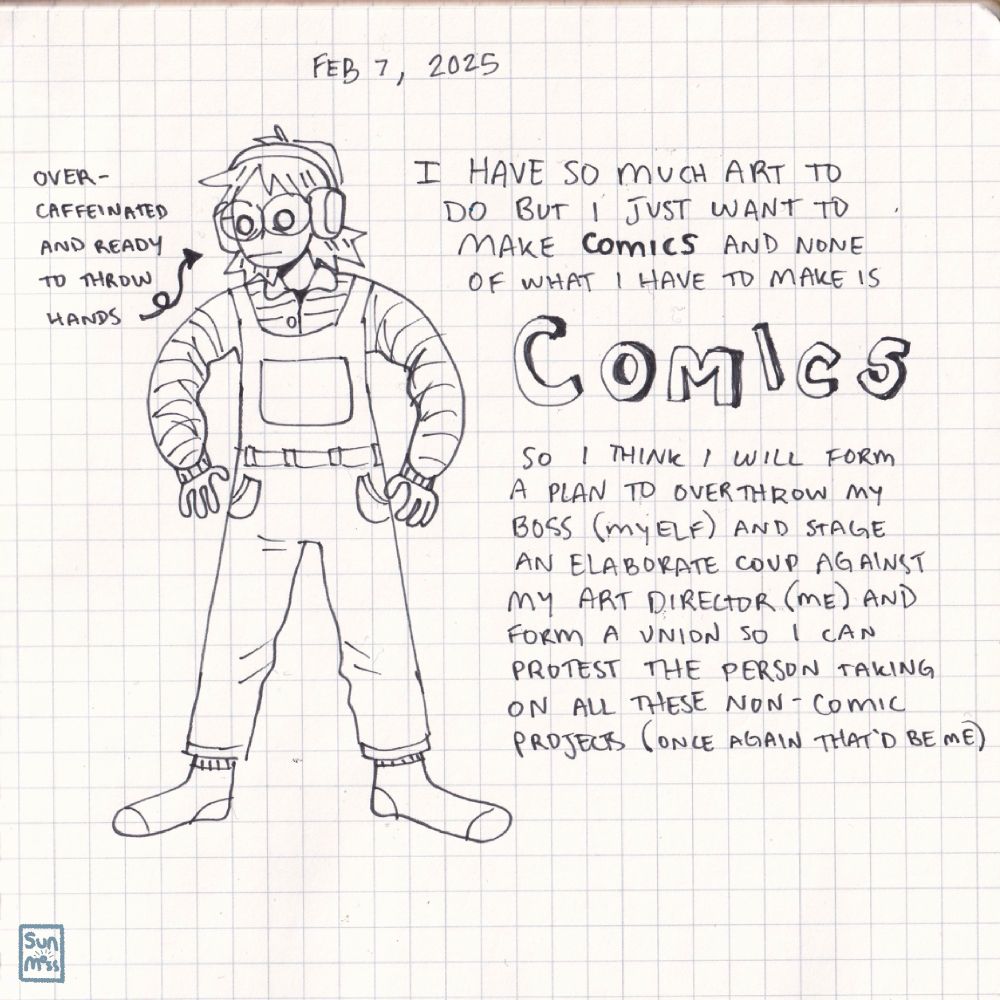 FEB 7, 2025
OVER-
CAFFEINATED
AND READY
TO THROW
HANDS
I HAVE SO MUCH ART TO
DO BUT I JUST WANT TO
MAKE COMICS AND NONE
OF WHAT I HAVE TO MAKE IS
COMICS
SO I THINK I WILL FORM
A PLAN TO OVERTHROW MY
BOSS (MYELF) AND STAGE
AN ELABORATE COUP AGAINST
MY ART DIRECTOR (ME) AND
FORM A UNION SO I CAN
PROTEST THE PERSON TAKING
ON ALL THESE NON-COMIC
PROJECTS (ONCE AGAIN THAT'D BE ME)
Sun
Moss